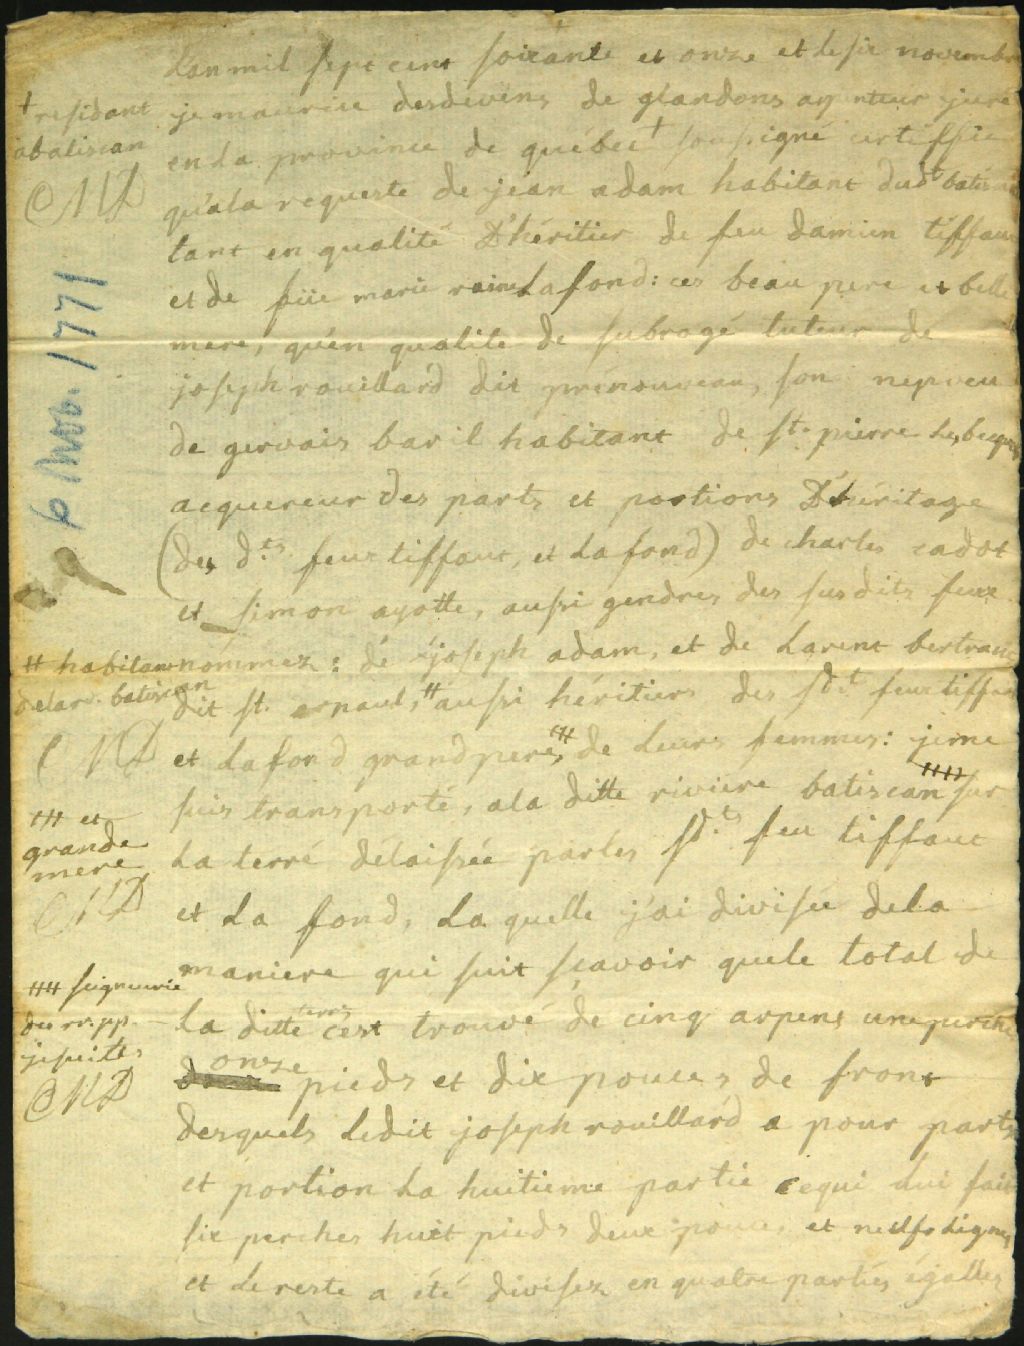 L'an mil sept cent soixante et onze et le six novembre
je maurice desdevens de glandons arpenteur juré
en La province de québec + soussigné certiffie
qu'ala requeste de jean adam habitant dudt batiscan
tant en qualité D'héritier de feu damien tiffaut
et de feüe marie raine Lafond: ces beau pere et belle
mere, qu'en qualité de subrogé tuteur de
joseph rouillard dit prénouveau, son nepveu
de gervais baril habitant de st. pierre les becquets
acquereur des parts et portions D'héritage
(des d.ts feux tiffaut, et Lafond) de charles cadot
et simon ayotte, aussi gendres des susdits feux
nommez: de joseph adam, et de Larent bertrand
dit st. arnaud, # aussi héritiers des sd.t feux tiffaut
et Lafond grand peres ## de Leurs femmes: je me
suis transporté, a la ditte riviere batiscan ### sur
La terre délaissée par les sd.ts feu tiffaut
et La fond, La quelle j'ai divisée de la
maniere qui suit sçavoir que le total de
La ditte terre c'est trouvé de cinq arpens une perche
onze pieds et dix pouces de front
desquels Ledit joseph rouillard a pour parts
et portion La huitieme partie ce qui Lui fait
six perches huit pieds deux pouces et neufs Lignes
et Le reste a été divisez en quatre parties égalles
+ residant
a batiscan
MD
6 Nov. 1771
# habitans
de la r. batiscan
MD
## et
grande
mere
MD
### seigneurie
des rr. pp.
jesuites
MD